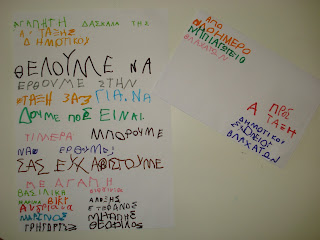 ΑΓΑΠΗΤΗ ΔΑΣΚΑΛΑ ΤΗΣ
Α' ΤΑΞΗΣ
ΔΗΜΟΤΙΚΟΥ
ΘΕΛΟΥΜΕ ΝΑ
ΕΡΘΟΥΜΕ ΣΤΗΝ
ΤΑΞΗ ΣΑΣ ΓΙΑ ΝΑ
ΔΟΥΜΕ ΠΩΣ ΕΙΝΑΙ
ΤΙ ΜΕΡΑ ΜΠΟΡΟΥΜΕ
ΝΑ ΕΡΘΟΥΜΕ;
ΣΑΣ ΕΥΧΑΡΙΣΤΟΥΜΕ
ΜΕ ΑΓΑΠΗ
ΒΑΣΙΛΙΚΑ
ΜΑΡΙΝΑ ΒΙΚΥ ΑΛΕΞΗΣ
ΑΝΔΡΙΑΝΑ ΣΤΕΦΑΝΟΣ
ΜΑΡΙΝΟΣ ΜΙΧΑΛΗΣ
ΓΡΗΓΟΡΗΣ ΘΕΟΦΙΛΟΣ
ΑΠΟ
ΟΛΟΗΜΕΡΟ
ΝΗΠΙΑΓΩΓΕΙΟ
ΒΛΑΧΑΤΩΝ
ΠΡΟΣ
Α ΤΑΞΗ
ΔΗΜΟΤΙΚΟΥ
ΣΧΟΛΕΙΟΥ
ΒΛΑΧΑΤΩΝ